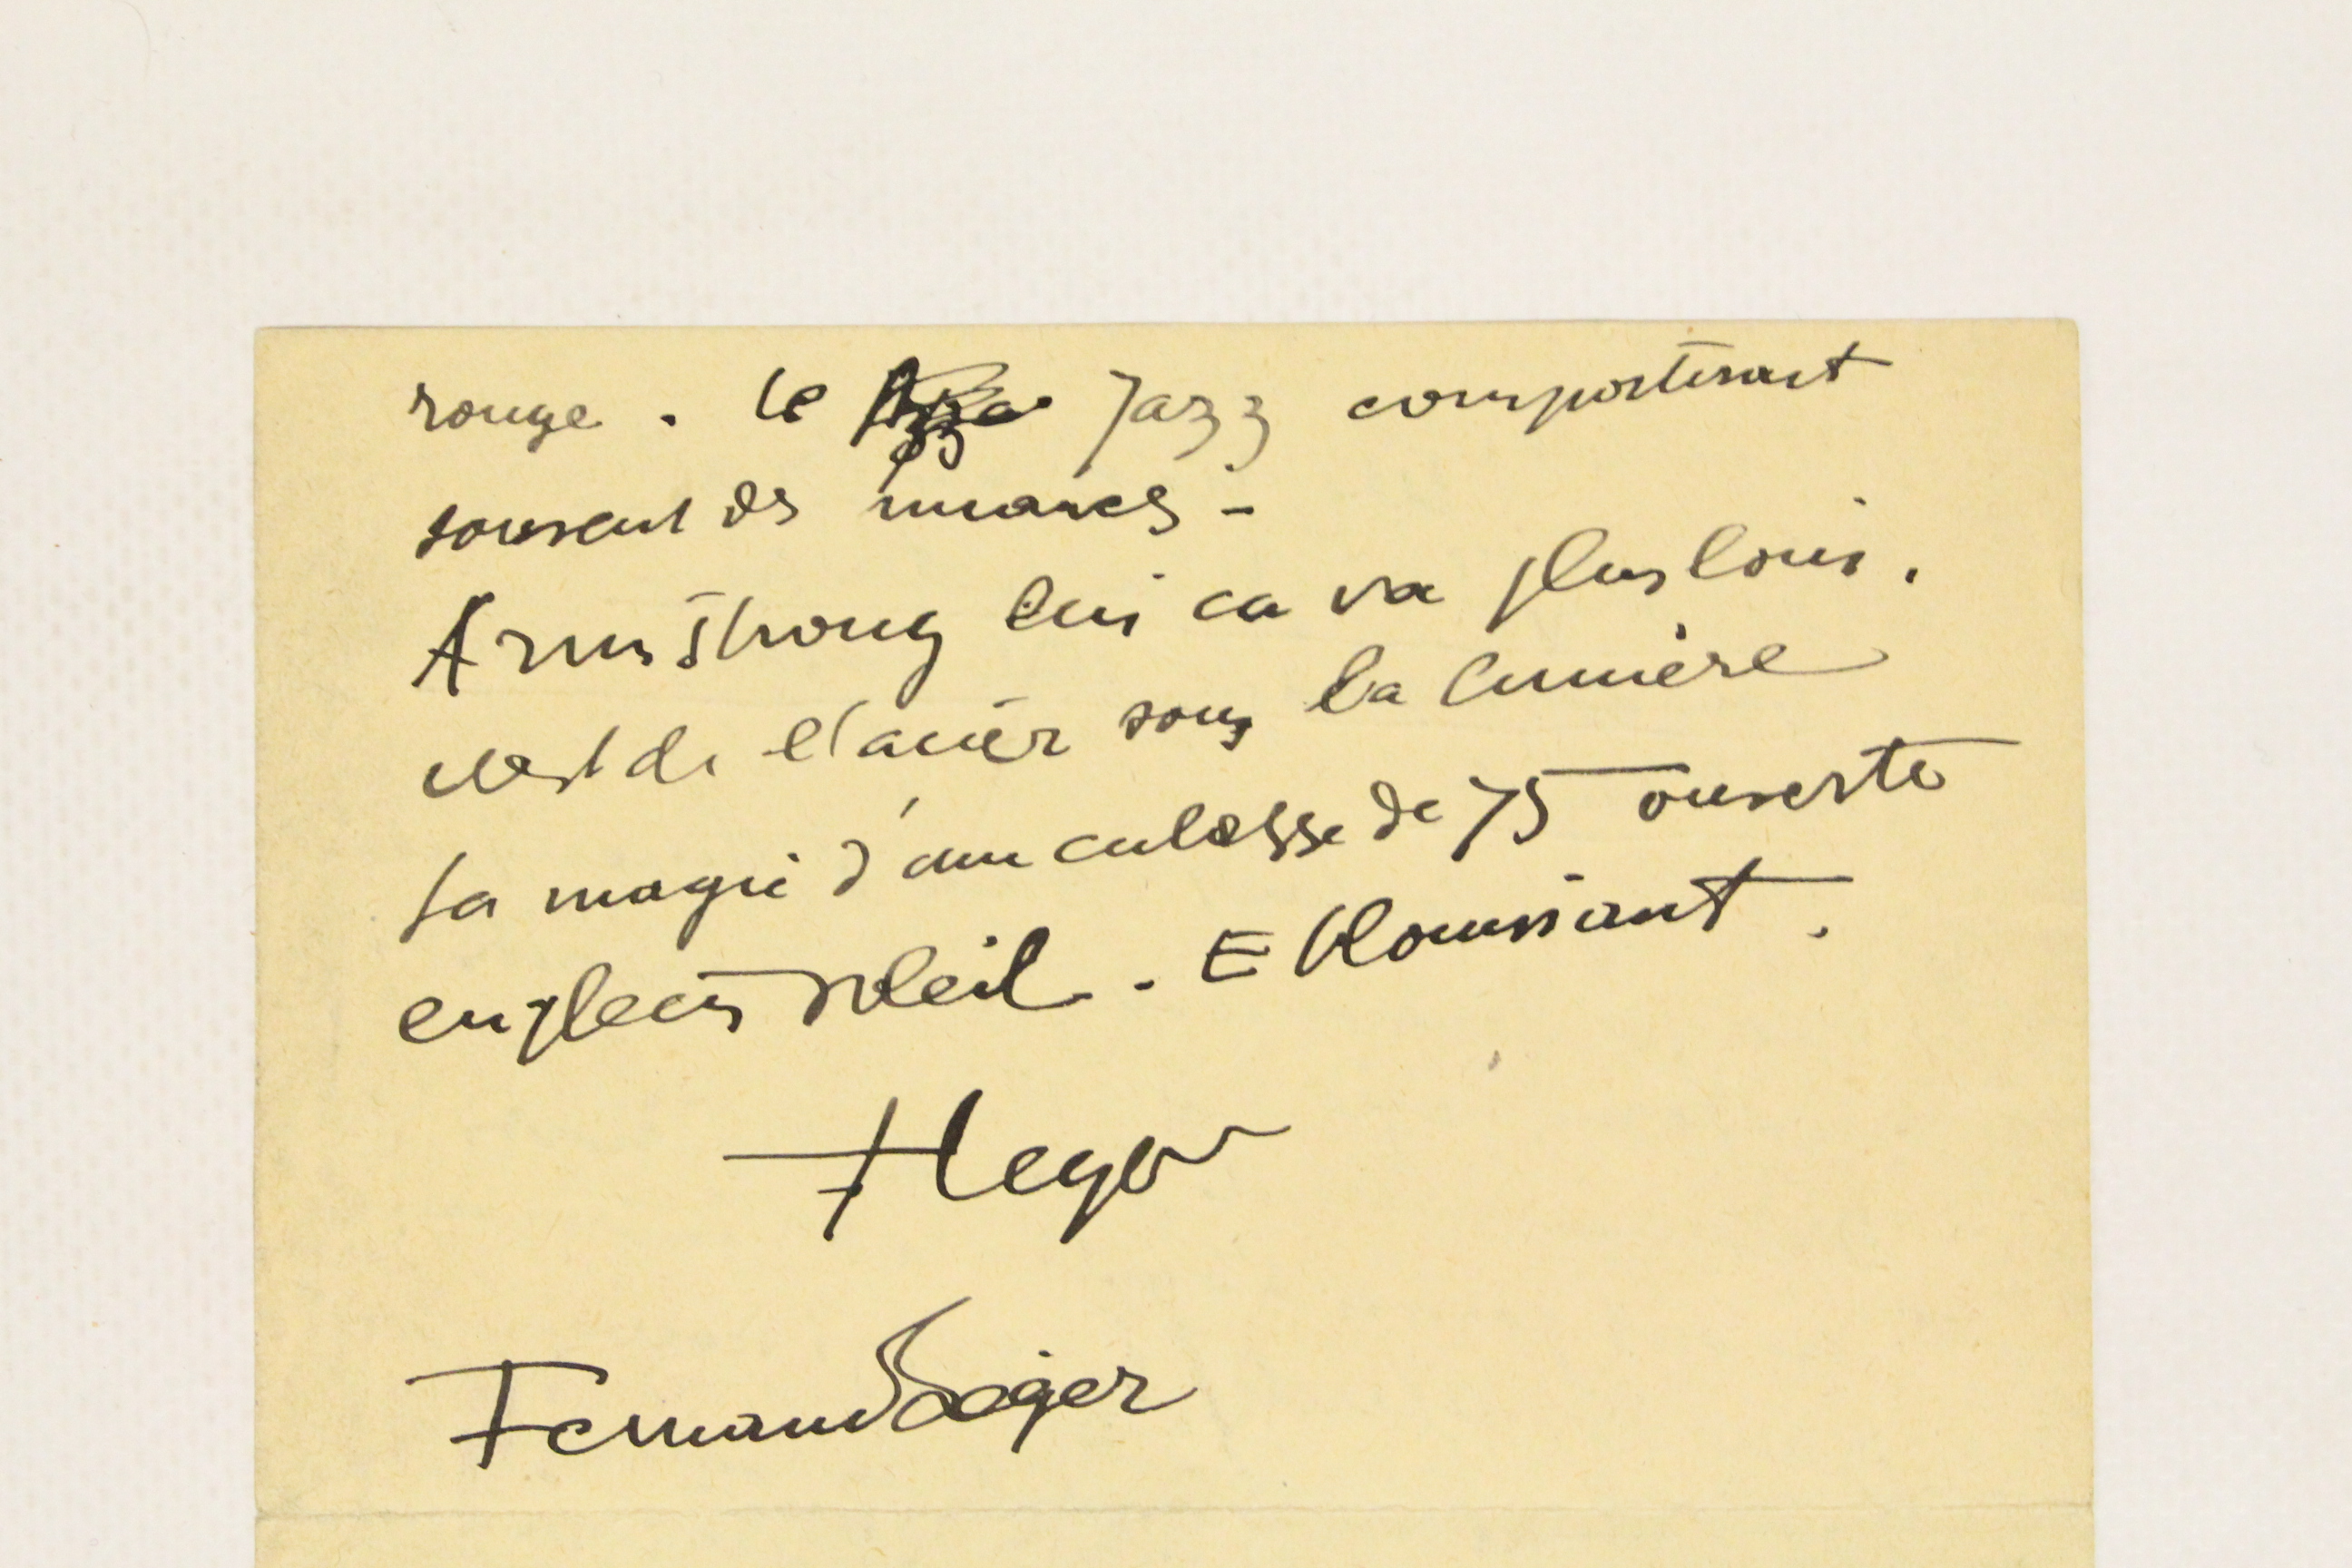 rouge. le Jazz comporterait
souvent des nuances -
Armstrong lui ca va plus loin.
c'est de l'acier sous la lumière
la magie d'une culasse de 75 ouverte
en plein soleil. Eblouissant.
FLeger
Fernand Léger